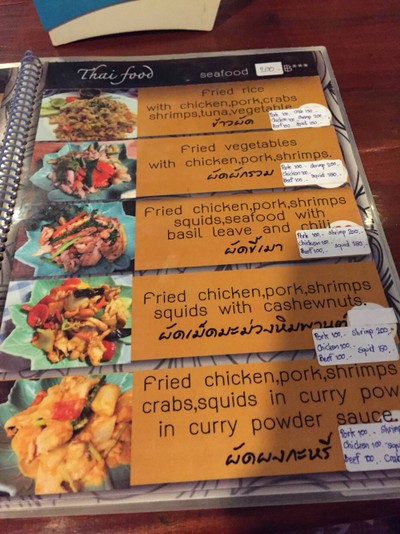 Thai food
seafood 200.- ฿***
Fried rice
with chicken,pork,crabs
shrimps,tuna,vegetable
ข้าวผัด
Pork 100.-
Chicken 100.-
Beef 100.- squid 180.-
Fried vegetables
with chicken,pork,shrimps.
ผัดผักรวม
Pork 100.- shrimp 200.-
Chicken 100.-
Beef 100.- squid 180.-
Fried chicken,pork,shrimps
squids,seafood with
basil leave and chili
ผัดขี้เมา
Pork 100.- shrimp 200.-
Chicken 100.-
Beef 100.- squid 180.-
Fried chicken,pork,shrimps
squids with cashewnuts.
ผัดเม็ดมะม่วงหิมพานต์
Pork 100.- shrimp 200.-
Chicken 100.-
Beef 100.- squid 180.-
Fried chicken,pork,shrimps
crabs,squids in curry pow
in curry powder sauce.
ผัดผงกะหรี่
Pork 100.- Shrimp
Chicken 100.- squi
Beef 100.- Crab